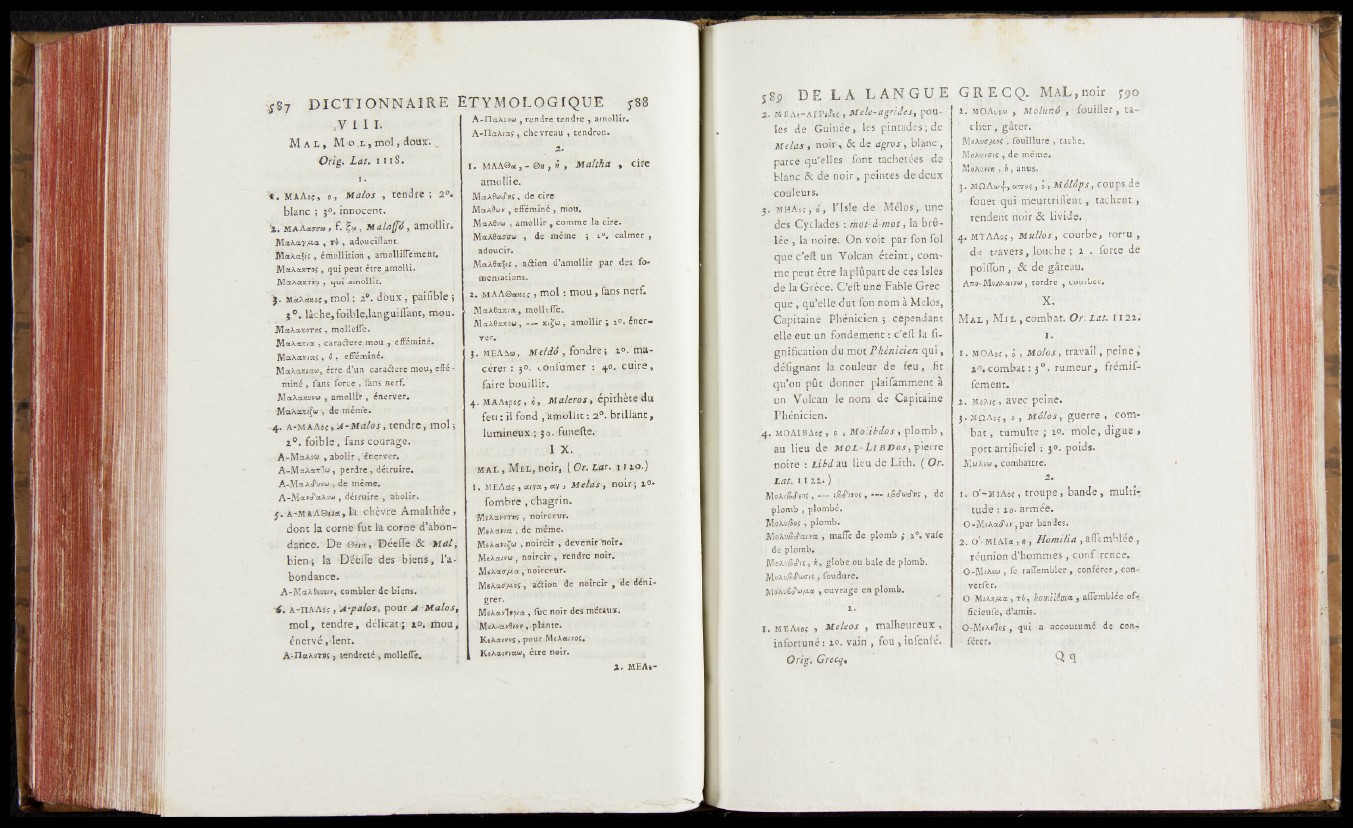 587 DICTIONNAIRE ÉTYMOLOGIQUE 588
VIII.
MAL, MOL, mol, doux.
Orig. Lat. 1118.
1.
1. ΜΑΛος, ο, Malos, tendre ; 2°.
blanc ; 3°. innocent.
2. ΜΑΛασσω, f. ξω, Malassó, amollir.
Μαλαγμα, τὸ, adoucissant.
Μαλαξις, émollition, amollissement.
Μαλακτος, qui peut être amolli.
Μαλακτὴρ, qui amollit.
3. Μαλακος, mol : 2°. doux, paisible ;
3°. lâche, foible, languissant, mou.
Μαλακοτης, mollesse.
Μαλακια, caractere mou, efféminé.
Μαλακιας, ὁ, efféminé.
Μαλακιαω, être d'un caractère mou, effé-
miné, sans force, sans nerf.
Μαλακυνω, amollir, énerver.
Μαλακιζω, de même.
4. Α-ΜΑΛος, A-Malos, tendre, mol ;
2°. foible, sans courage.
Α-Μαλοω, abolir, énerver.
Α-Μαλαπτω, perdre, détruire.
Α-Μαλδυνω, de même.
Α-Μανδαλοω, détruire, abolir.
5. Α-ΜΑΛΘεια, la chèvre Amalthée,
dont la corne fut la corne d'abon-
dance. De Θεια, Déesse & Mal,
bien ; la Déesse des biens, l'a-
bondance.
Α-Μαλθευειν, combler de biens.
6. Α-ΠΑΛος, A-palos, pour A-Malos,
mol, tendre, délicat ; 2°. mou,
énervé, lent.
Α-Παλοτης, tendreté, mollesse.
Α-Παλυνω, rendre tendre, amollir.
Α-Παλιας, chevreau, tendron.
2.
1. ΜΑΛΘα, - Θη, ἡ, Maltha, cire
amollie.
Μαλθωδης, de cire
Μαλθων, efféminé, mou.
Μαλθοω, amollir, comme la cire.
Μαλθασσω, de même ; 2°. calmer,
adoucir.
Μαλθαξις, action d'amollir par des fo-
mentations.
2. ΜΑΛΘακος, mol : mou, sans nerf.
Μαλθακια, mollesse.
Μαλθακοω, — κιζω, amollir ; 2°. éner-
ver.
3. ΜΕΛΔω, Meldó, fondre ; 2°. ma-
cérer : 3°. consumer : 4°. cuire,
faire bouillir.
4. ΜΑΛερος, ὁ, Maleros, épithète du
feu : il fond, amollit : 2°. brillant,
lumineux ; 3°. funeste.
IX.
MAL, MEL, noir, (Or. Lat. 1120.)
1. ΜΕΛας, αινα, αν, Melas, noir ; 2°.
sombre, chagrin.
Μελανοτης, noirceur.
Μελανια, de même.
Μελανιζω, noircir, devenir noir.
Μελαινω, noircir, rendre noir.
Μελασμα, noirceur.
Μελασμος, action de noircir, de déni-
grer.
Μελαντηρια, suc noir des métaux.
Μελανθιον, plante.
Κελαινος, pour Μελαινος.
Κελαινιαω, être noir.
2. ΜΕΛε-
589 DE LA LANGUE GRECQ. MAL, noir 590
2. ΜΕΛε-ΑΓΡιδες, Mele-agrides, pou-
les de Guinée, les pintades ; de
Melas, noir, & de agros, blanc,
parce qu'elles sont tachetées de
blanc & de noir, peintes de deux
couleurs.
3. ΜΗΛος, ὁ, l'Isle de Mélos, une
des Cyclades : mot-à-mot, la brû-
lée, la noire. On voit par son sol
que c'est un Volcan éteint, com-
me peut être la plûpart de ces Isles
de la Grèce. C'est une Fable Grec
que, qu'elle dut son nom à Melos,
Capitaine Phénicien ; cependant
elle eut un fondement : c'est la si-
gnification du mot Phénicien qui,
désignant la couleur de feu, fit
qu'on pût donner plaisamment à
un Volcan le nom de Capitaine
Phénicien.
4. ΜΟΛΙΒΔος, ο, Molibdos, plomb,
au lieu de MOL-LIBDos, pierre
noire : Libd au lieu de Lith. (Or.
Lat. 1122.)
Μολιβδεος, — ιβδινος, — ιβδωδης, de
plomb, plombé.
Μολυβος, plomb.
Μολυβδαινα, masse de plomb ; 2°. vase
de plomb.
Μολυβδις, ἡ, globe ou bale de plomb.
Μολυβδωσις, soudure.
Μολυβδωμα, ouvrage en plomb.
2.
1. ΜΕΛεος, Meleos, malheureux,
infortuné : 2°. vain, fou, insensé.
Orig. Grecq.
2. ΜΟΛυνω, Molunó, souiller, ta-
cher, gâter.
Μολυσμος, souillure, tache.
Μολυνσις, de même.
Μολυνιη, ἡ, anus.
3. ΜΩΛωψ, ωπος, ὁ, Mólóps, coups de
fouet qui meurtrissent, tachent,
rendent noir & livide.
4. ΜΥΛΛος, Mullos, courbe, tortu,
de travers, louche ; 2. sorte de
poisson, & de gâteau.
Απο-Μυλλαινω, tordre, courber.
X.
MAL, MIL, combat. Or. Lat. 1122.
1.
1. ΜΟΛος, ὁ, Molos, travail, peine ;
2°. combat : 3°. rumeur, frémis-
sement.
2. Μολις, avec peine.
3. ΜΩΛος, ο, Mólos, guerre, com-
bat, tumulte ; 2°. mole, digue,
port artificiel : 3°. poids.
Μωλεω, combattre.
2.
1. Ο'-ΜΙΛος, troupe, bande, multi-
tude : 2°. armée.
Ο-Μιλαδον, par bandes.
2. Ο'-ΜΙΛΙα, η, Homilia, assemblée,
réunion d'hommes, conférence.
Ο-Μιλεω, se rassembler, conférer, con-
verser.
Ο-Μιλημα, τὸ, homiléma, assemblée of-
ficieuse, d'amis.
Ο-Μιλητος, qui a accoutumé de con-
férer.
Q q